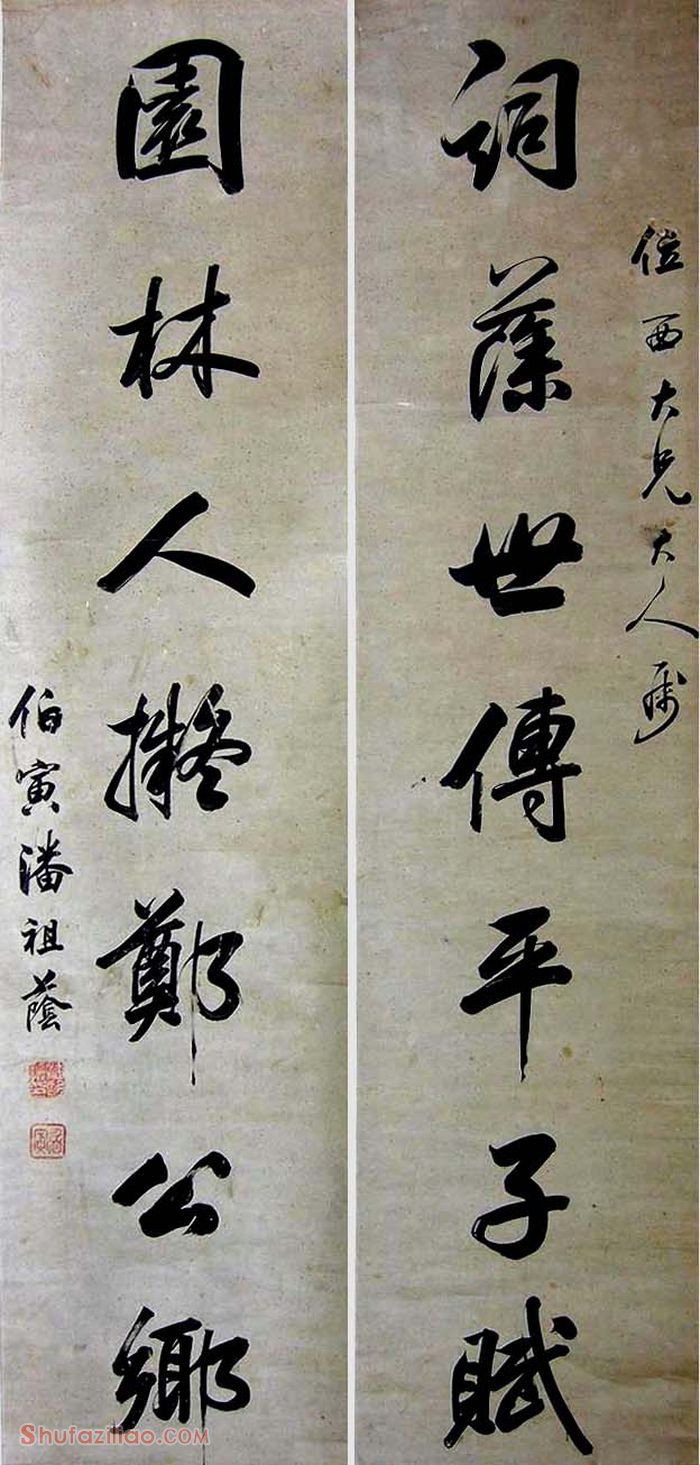 西大兄大人屬
詞藻世傳平子賦
園林人擬鄭公鄉
伯寅潘祖蔭
Shufaziliao.com